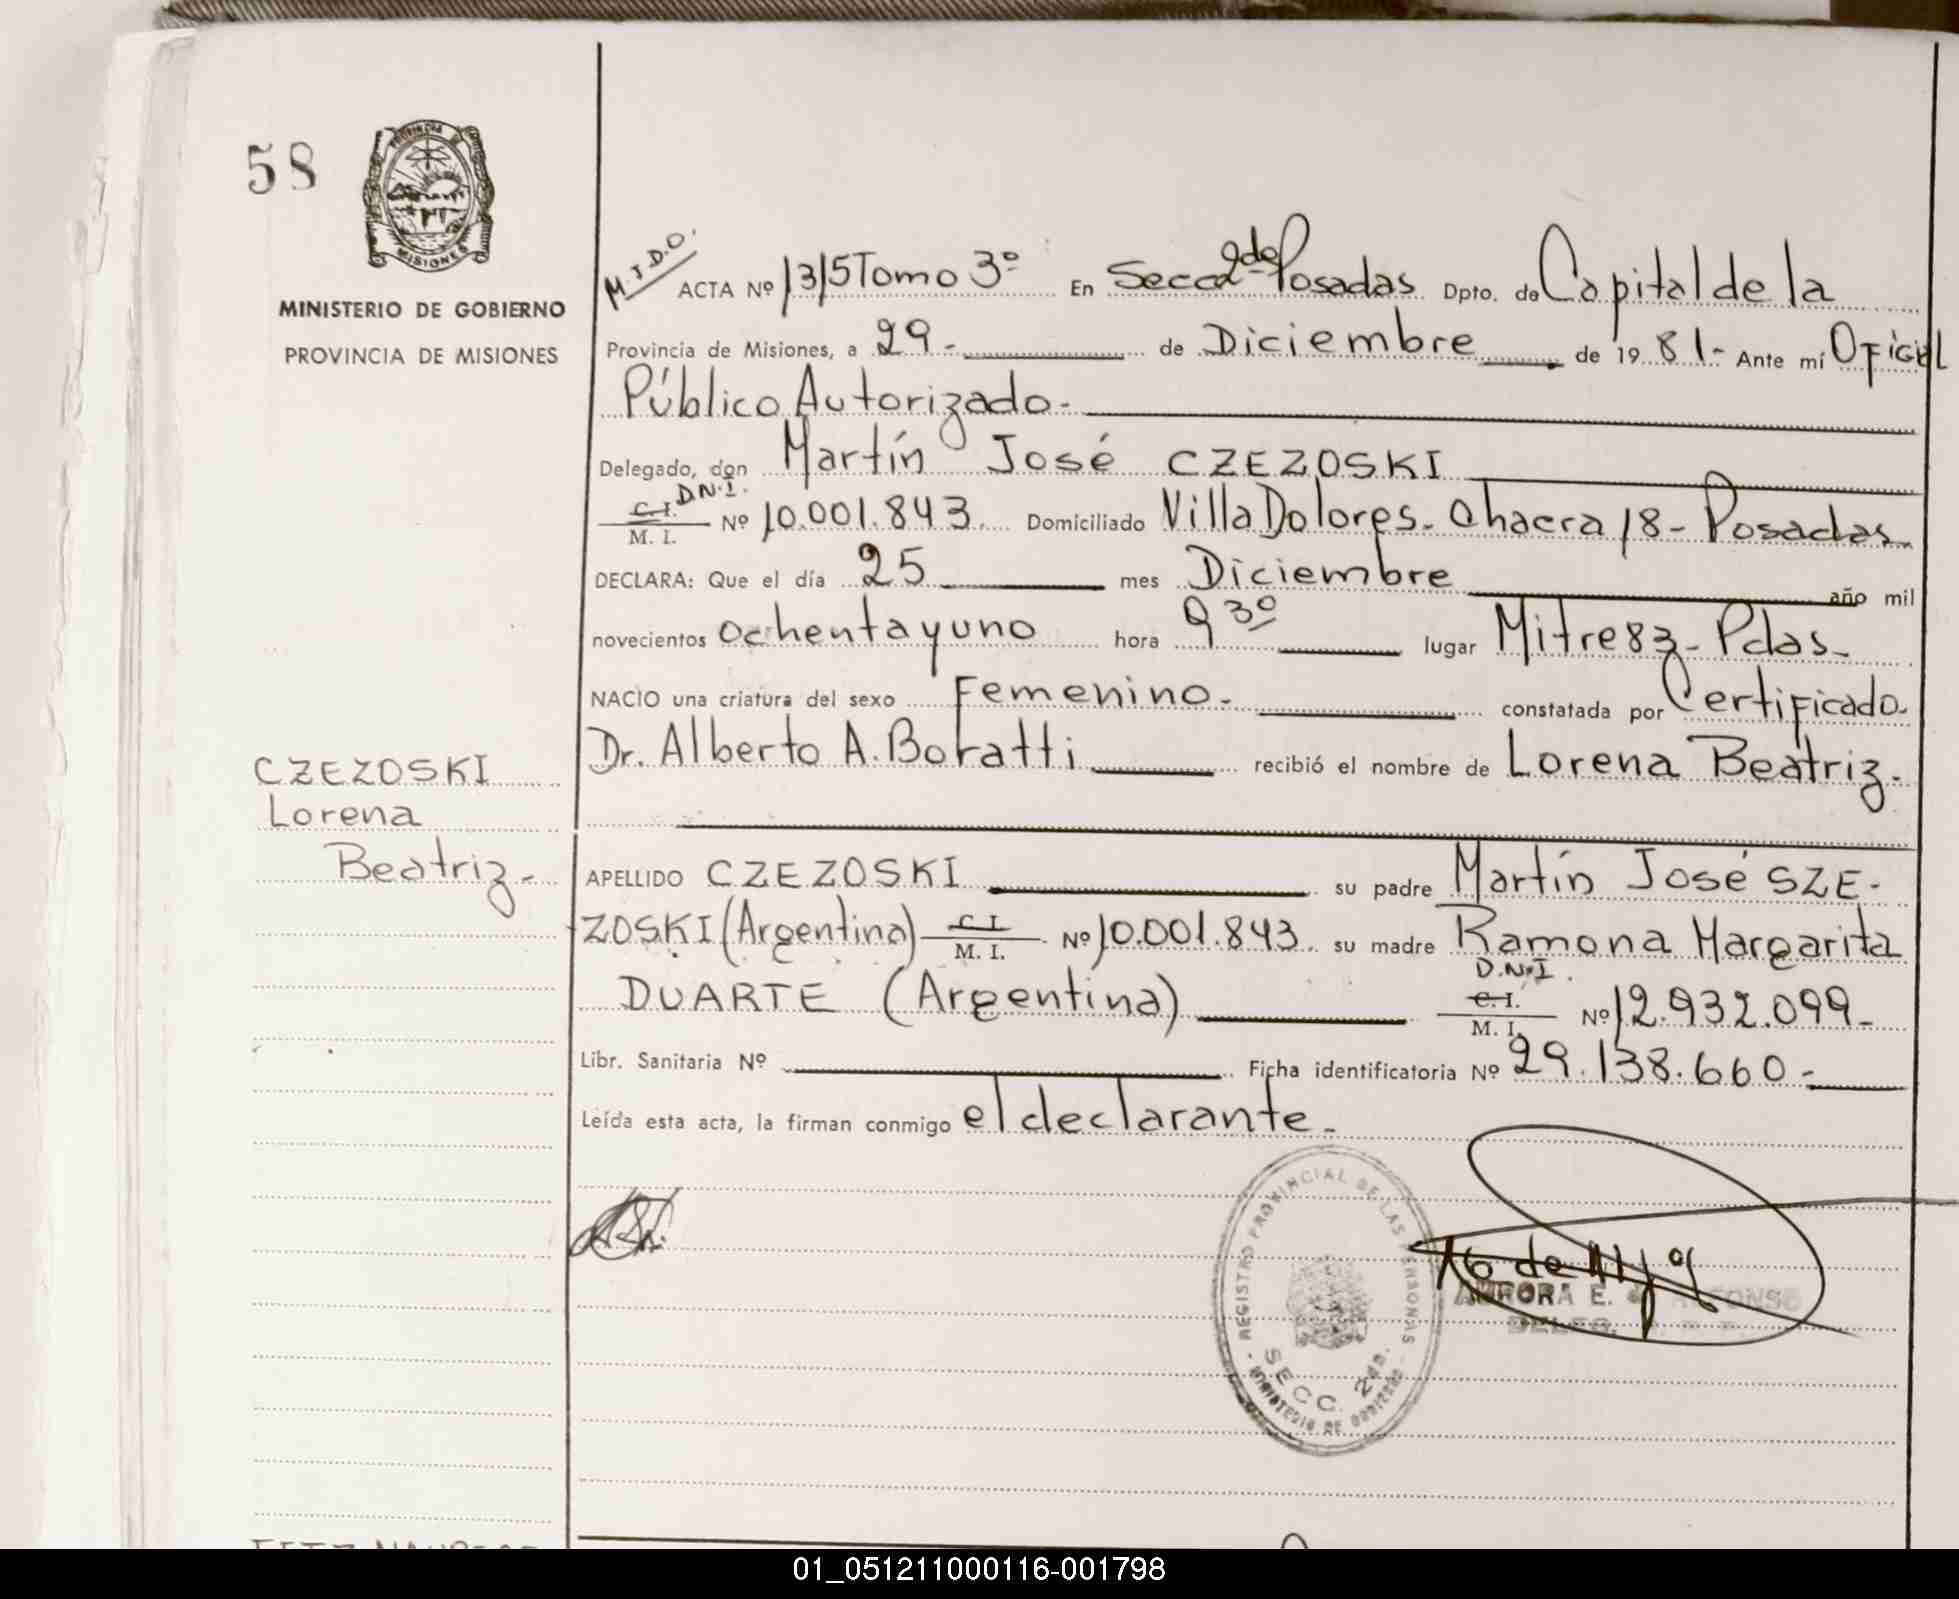 58
PROVINCIA DE
MISIONES
MINISTERIO DE GOBIERNO
PROVINCIA DE MISIONES
CZEZOSKI
Lorena
Beatriz.-
M.I.D.O.
ACTA Nº 1315 Tomo 3º En Secc 2da Posadas Dpto. de Capital de la
Provincia de Misiones, a 29.- de Diciembre de 19 81.- Ante mí Oficial
Público Autorizado.-
Delegado, don Martín José CZEZOSKI
D.N.I.
C.I.
M. I. Nº 10.001.843. Domiciliado Villa Dolores. Chacra 18 - Posadas
DECLARA: Que el día 25 mes Diciembre año mil
novecientos ochenta y uno hora 9 30 lugar Mitre 83 - Pdas.-
NACIO una criatura del sexo Femenino.- constatada por Certificado.
Dr. Alberto A. Boratti recibió el nombre de Lorena Beatriz.-
APELLIDO CZEZOSKI su padre Martín José SZE-
ZOSKI (Argentino) C.I.
M. I. Nº 10.001.843. su madre Ramona Margarita
DUARTE (Argentina) D.N.I.
C.I.
M. I. Nº 12.932.099-
Libr. Sanitaria Nº Ficha identificatoria Nº 29.138.660-
Leída esta acta, la firman conmigo el declarante.-
REGISTRO PROVINCIAL DE LAS PERSONAS
SECC. 2da.
MINISTERIO DE GOBIERNO
AURORA E. de
01_051211000116-001798